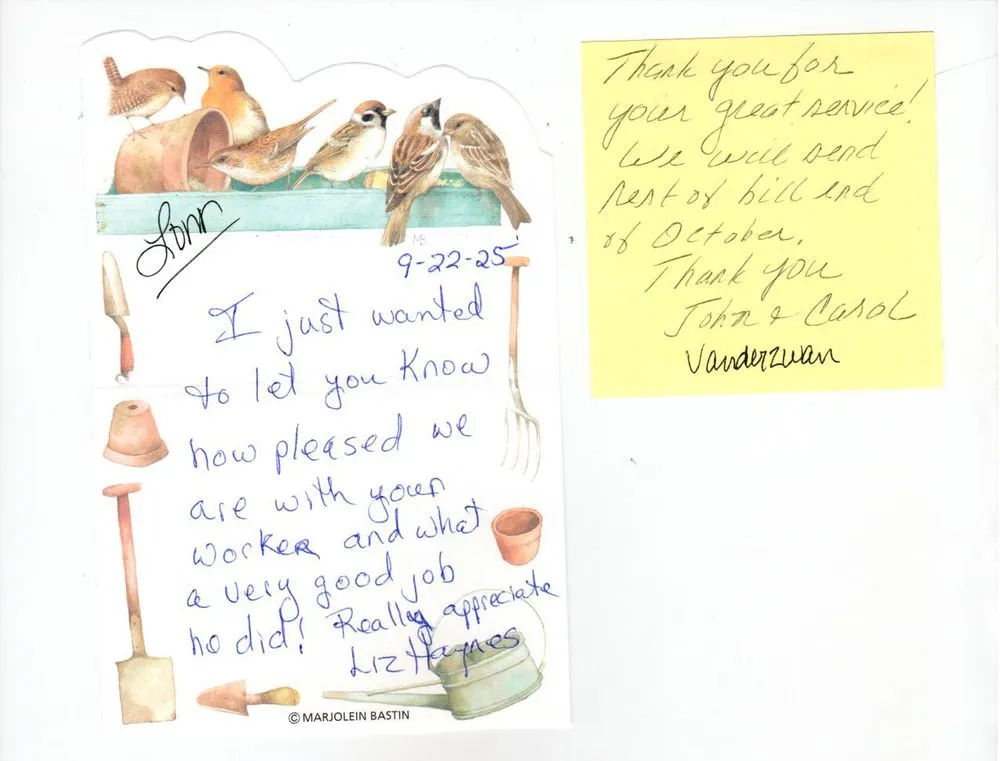 Lonn
MB
9-22-25
I just wanted
to let you know
how pleased we
are with your
worker and what
a very good job
he did! Really appreciate
Liz Haynes
© MARJOLEIN BASTIN
Thank you for
your great service!
We will send
rest of bill end
of October.
Thank you
John & Carol
Vanderzwan